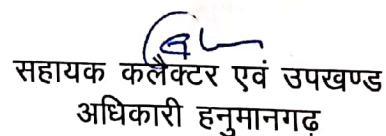 सहायक कलैक्टर एवं उपखण्ड
अधिकारी हनुमानगढ़